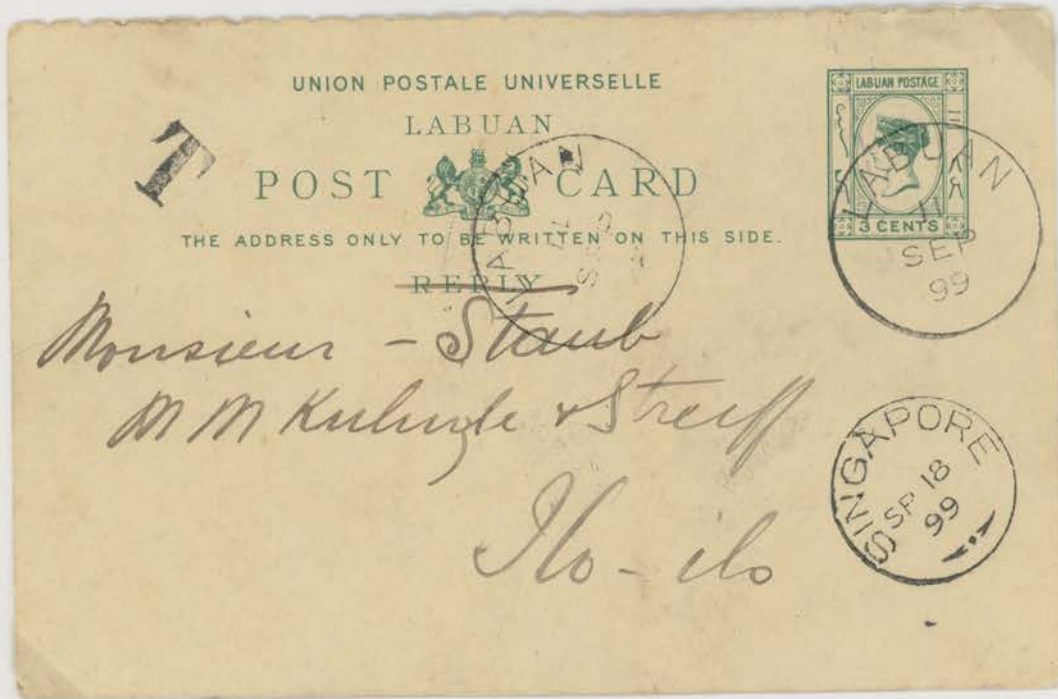 UNION POSTALE UNIVERSELLE
LABUAN
POST CARD
THE ADDRESS ONLY TO BE WRITTEN ON THIS SIDE.
REPLY
T
LABUAN POSTAGE
3 CENTS
LABUAN
11
SEP
99
LABUAN
Monsieur - Staub
M M & Streiff
Ilo-ilo
SINGAPORE
SP 18
99